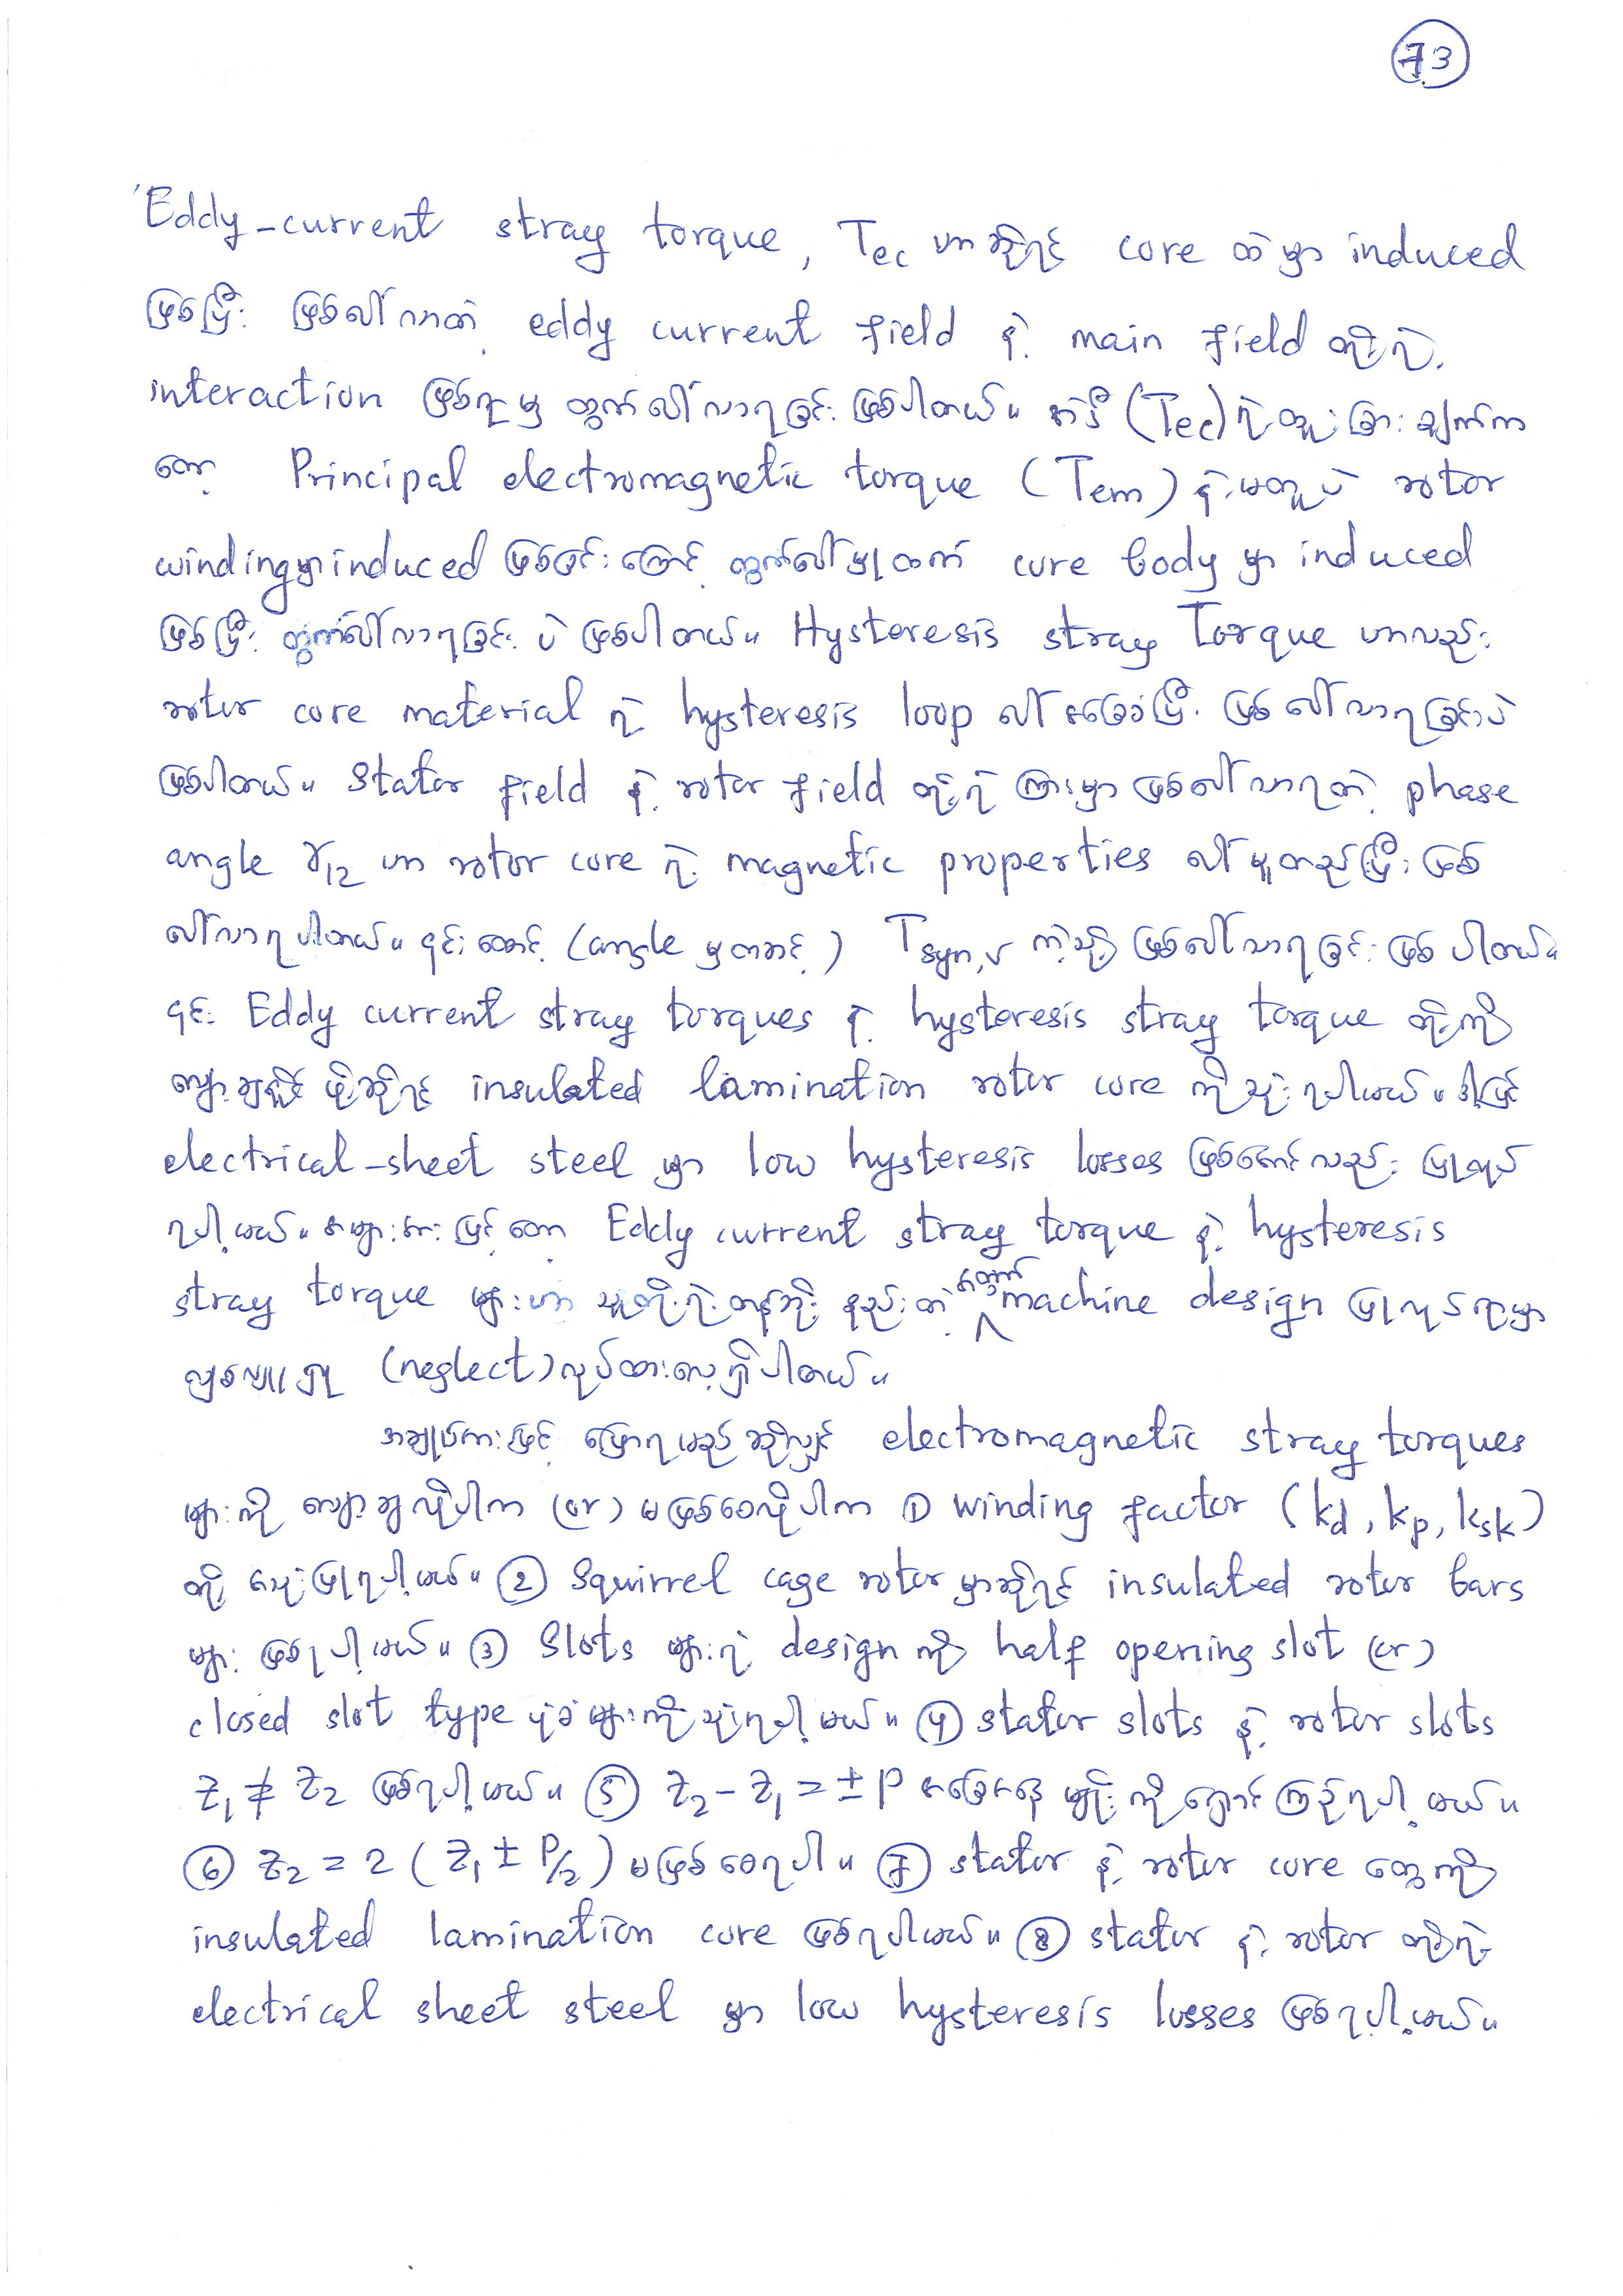 73
Eddy-current stray torque, Tec ဟာဆိုရင် core ထဲမှာ induced
ဖြစ်ပြီး ဖြစ်ပေါ်လာတဲ့ eddy current field နဲ့ main field တို့ရဲ့
interaction ဖြစ်ရာမှ ထွက်ပေါ်လာရခြင်း ဖြစ်ပါတယ်။ အဲဒီ (Tec) ရဲ့ ထူးခြားချက်က
တော့ Principal electromagnetic torque (Tem) နဲ့မတူပဲ rotor
windingမှာinduced ဖြစ်ခြင်းကြောင့် ထွက်ပေါ်မှုထက် core body မှာ induced
ဖြစ်ပြီး ထွက်ပေါ်လာရခြင်း ပဲ ဖြစ်ပါတယ်။ Hysteresis stray Torque ဟာလည်း
rotor core material ရဲ့ hysteresis loop ပေါ်အခြေခံပြီး ဖြစ်ပေါ်လာရခြင်းပဲ
ဖြစ်ပါတယ်။ Stator field နဲ့ rotor field တို့ရဲ့ ကြားမှာ ဖြစ်ပေါ်လာရတဲ့ phase
angle γ12 ဟာ rotor core ရဲ့ magnetic properties ပေါ်မူတည်ပြီး ဖြစ်
ပေါ်လာရပါတယ်။ ၎င်းထောင့် (angle မှတဆင့်) Tsyn,r ကဲ့သို့ ဖြစ်ပေါ်လာရခြင်း ဖြစ်ပါတယ်။
၎င်း Eddy current stray torques နဲ့ hysteresis stray torque တို့ကို
လျှော့ချနိုင်ဖို့ဆိုရင် insulated lamination rotor core ကိုသုံးရပါမယ်။ ဒါ့ပြင်
electrical-sheet steel မှာ low hysteresis losses ဖြစ်အောင်လည်း ပြုလုပ်
ရပါ့မယ်။ အများအားဖြင့်တော့ Eddy current stray torque နဲ့ hysteresis
stray torque များဟာ သူတို့ရဲ့တန်ဘိုး နည်းတဲ့ အတွက် machine design ပြုလုပ်ရာမှာ
လျစ်လျူရှု (neglect) လုပ်ထားလေ့ရှိပါတယ်။
အချုပ်အားဖြင့် ပြောရမည်ဆိုလျှင် electromagnetic stray torques
များကို လျှော့ချလိုပါက (or) မဖြစ်စေလိုပါက ① winding factor (kd, kp, ksk)
တို့ အသုံးပြုရပါ့မယ်။ ② Squirrel cage rotor မှာဆိုရင် insulated rotor bars
များ ဖြစ်ရပါ့မယ်။ ③ Slots များရဲ့ design ကို half opening slot (or)
closed slot type ပုံစံများကိုသုံးရပါ့မယ်။ ④ stator slots နဲ့ rotor slots
Z1 ≠ Z2 ဖြစ်ရပါ့မယ်။ ⑤ Z2 - Z1 = ± P အခြေအနေမျိုးကို ရှောင်ကြဉ်ရပါ့မယ်။
⑥ Z2 = 2 (Z1 ± P/2) မဖြစ်စေရပါ။ ⑦ stator နဲ့ rotor core တွေကို
insulated lamination core ဖြစ်ရပါမယ်။ ⑧ stator နဲ့ rotor တို့ရဲ့
electrical sheet steel မှာ low hysteresis losses ဖြစ်ရပါ့မယ်။